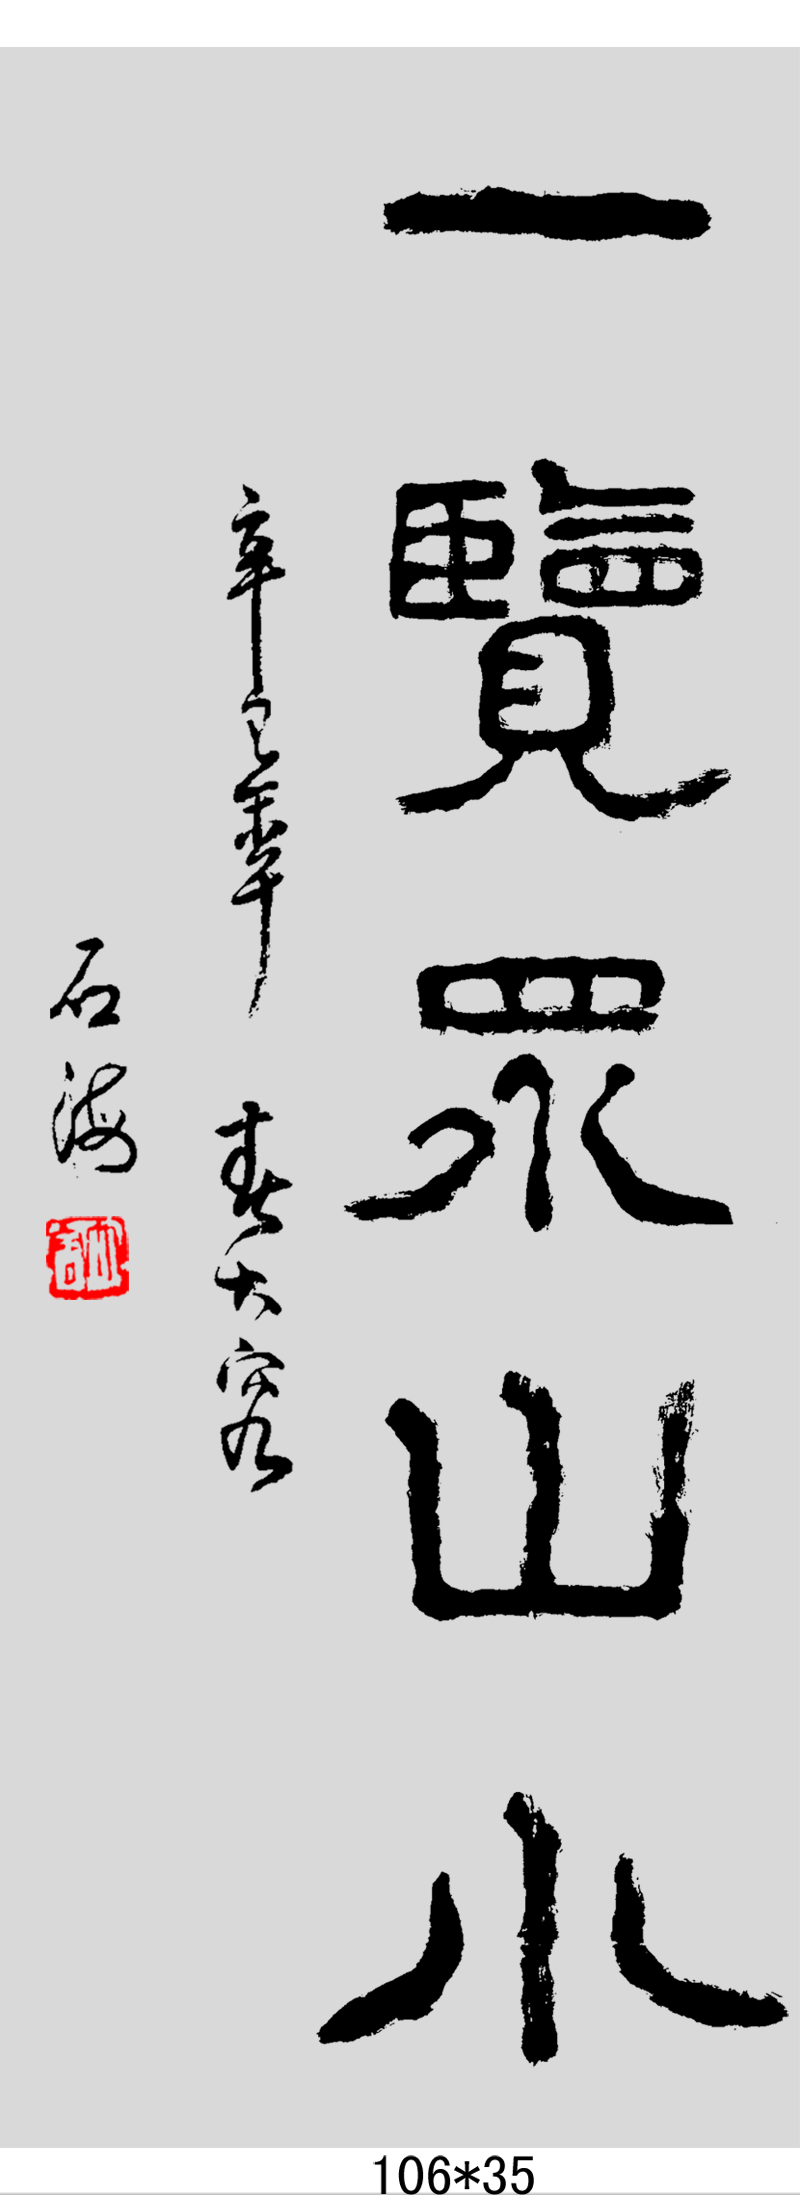 一覽眾山小
辛巳年 春大容
石海
106*35